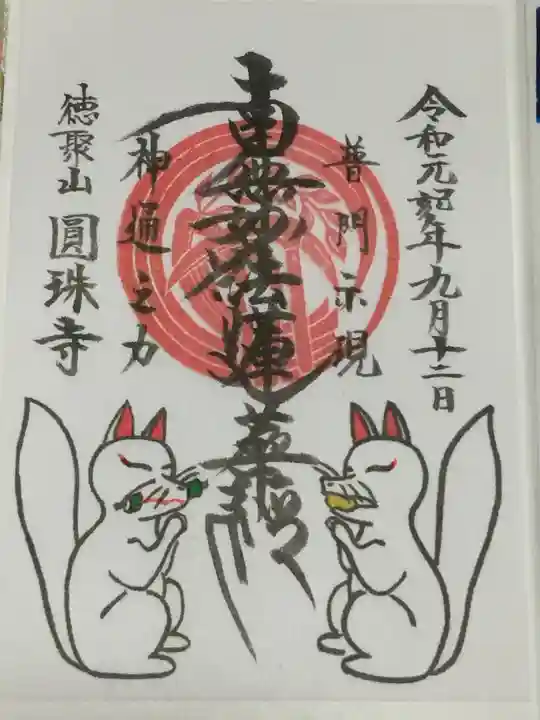 令和元記亥年九月十二日
普門示現
南無妙法蓮華経
神通之力
徳聚山 圓珠寺